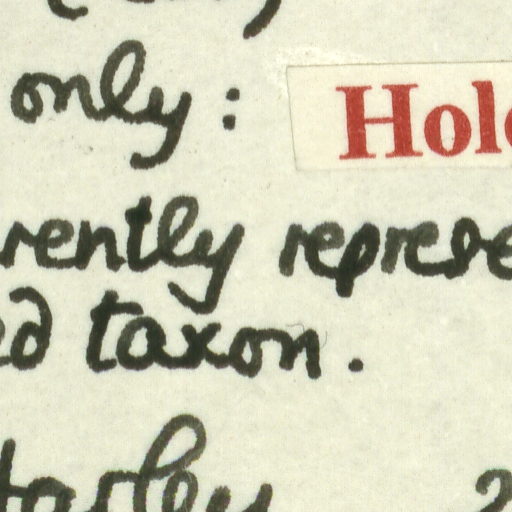 only: Hol
rently represe
ed taxon.
Harley